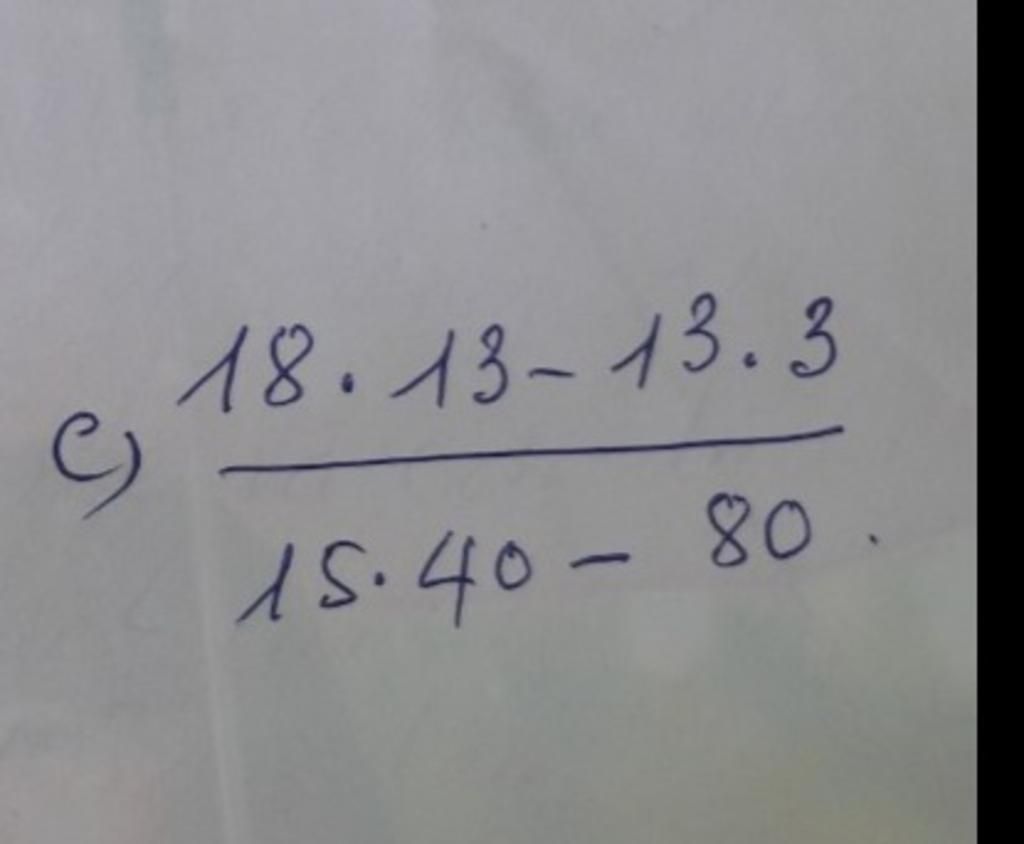 c) 18 . 13 - 13 . 3
15 . 40 - 80 .